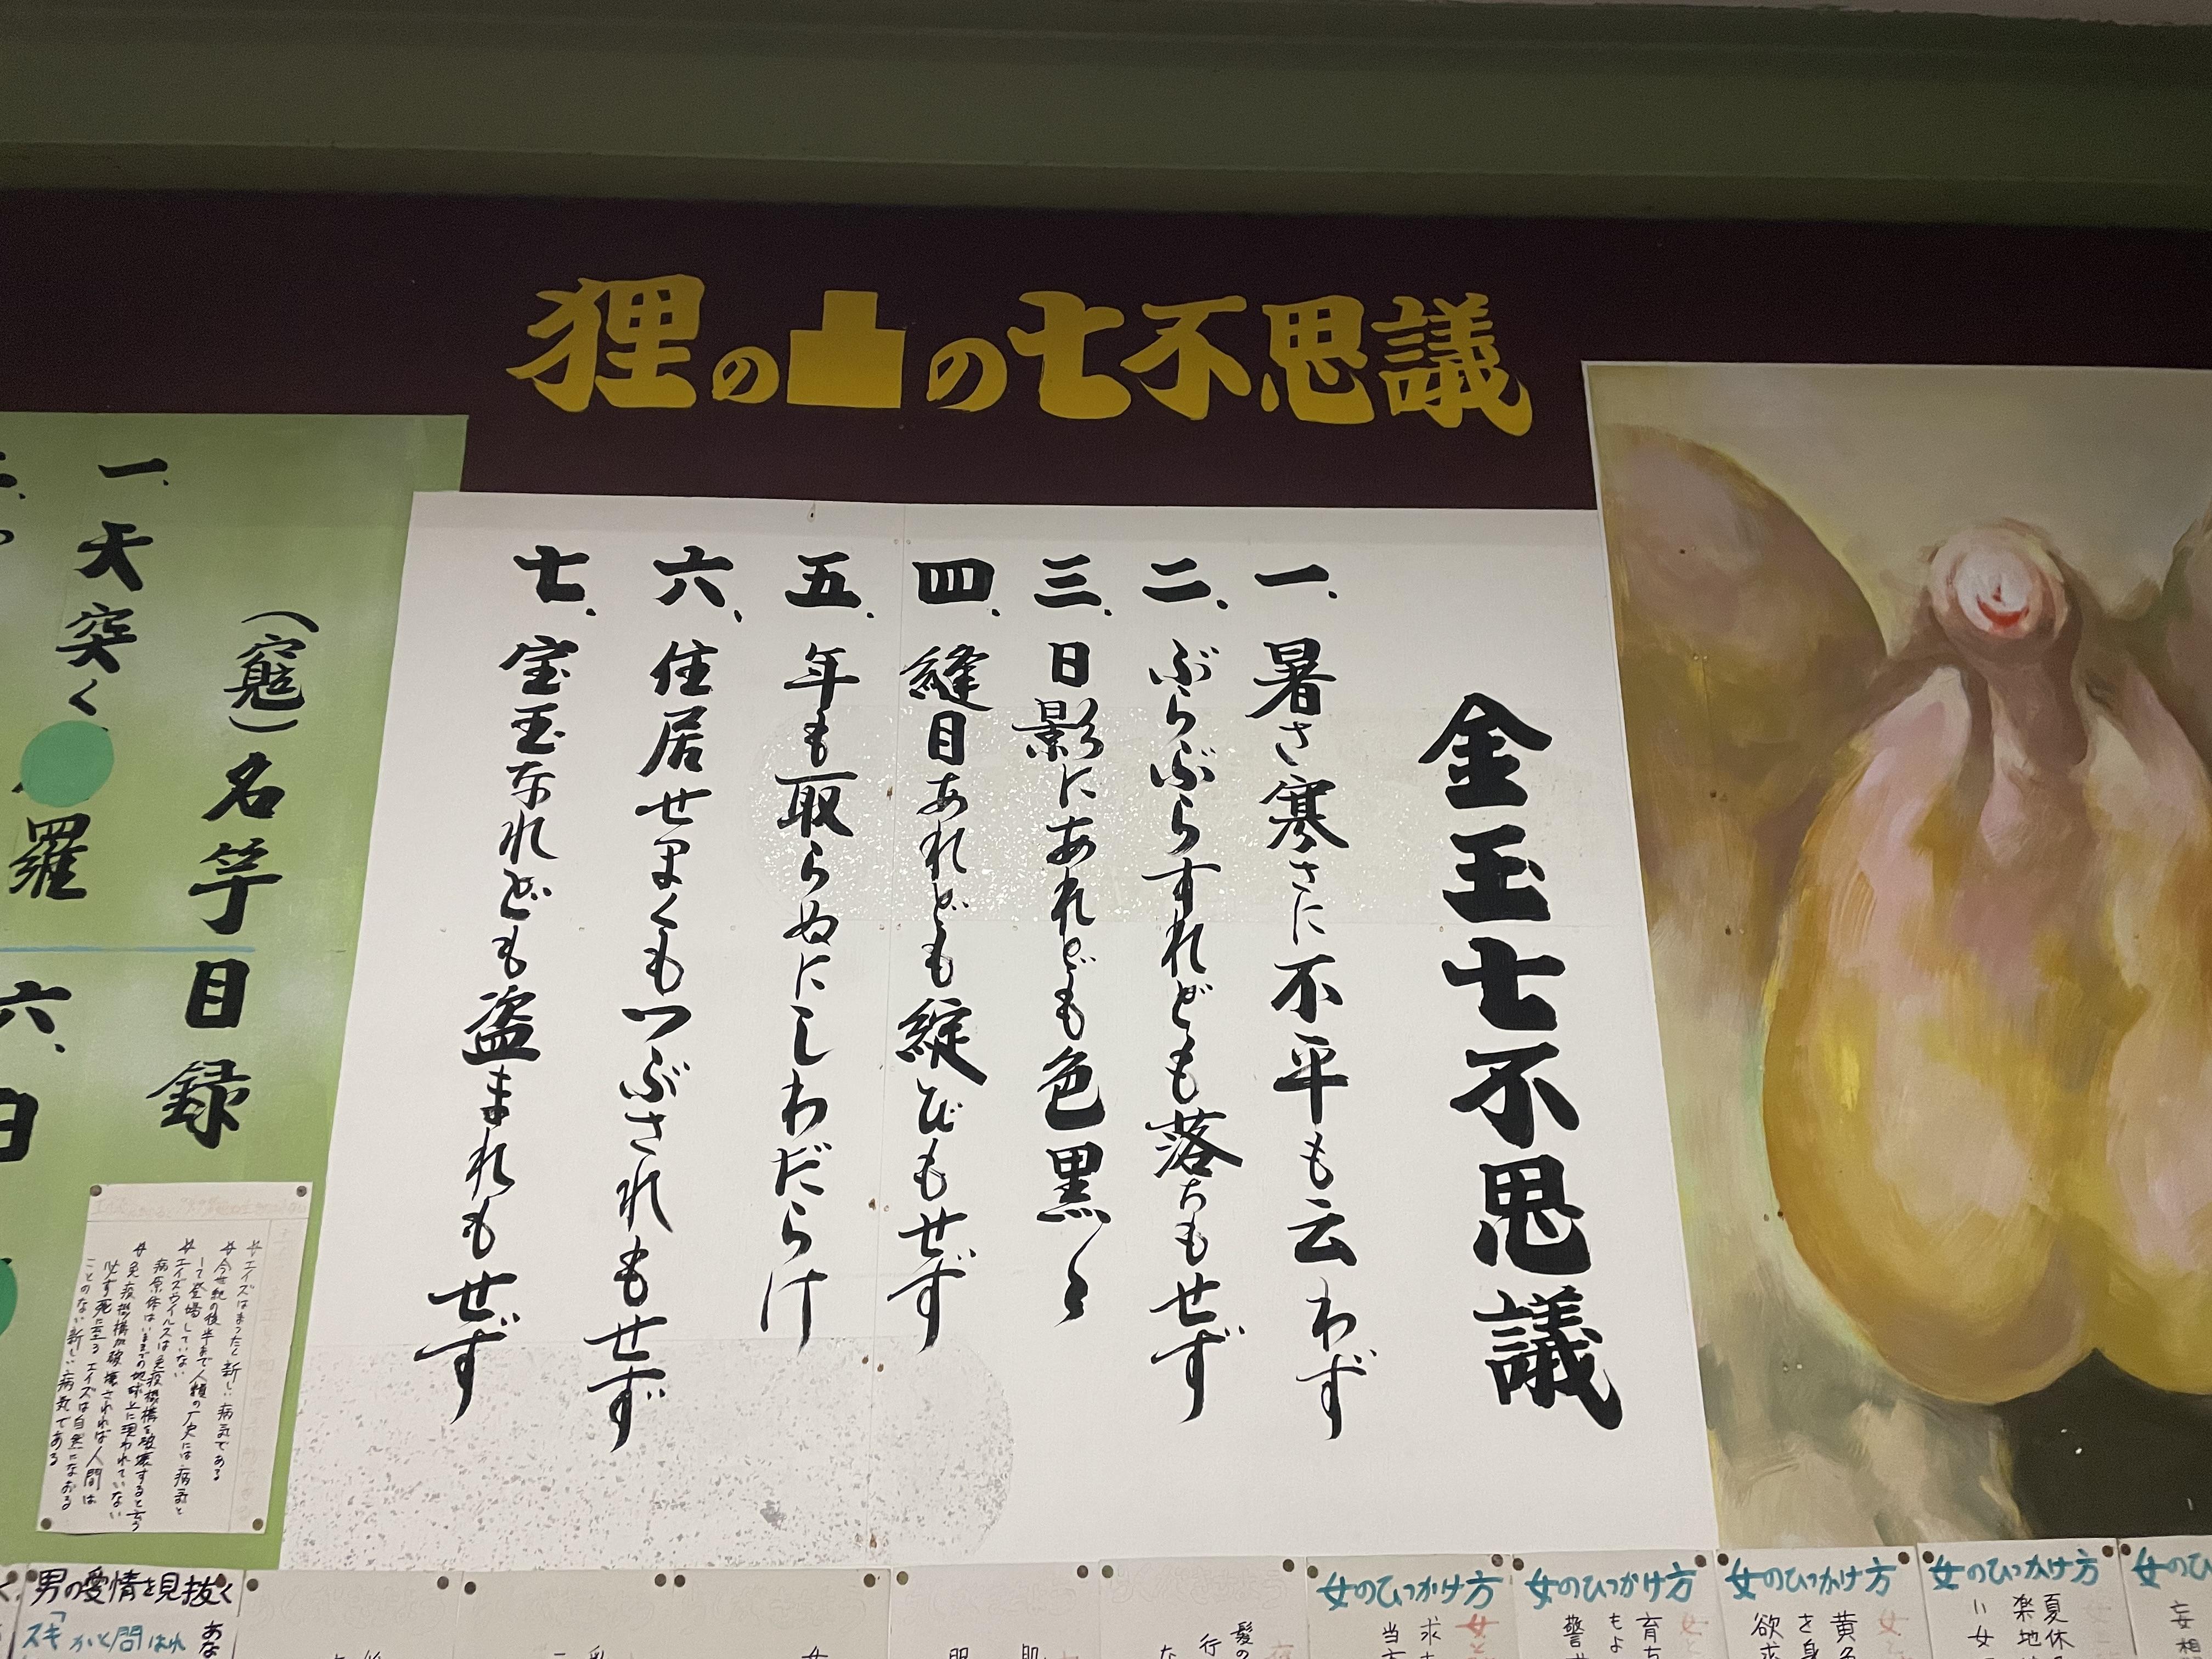 狸の
の七不思議
金玉七不思議
一、暑さ寒さに不平も云わず
二、ぶらぶらすれども落ちもせず
三、日影にあれども色黒く
四、縫目あれども綻びもせず
五、年も取らぬにしわだらけ
六、住居せまくもつぶされもせず
七、宝玉なれども盗まれもせず
名竿目録
一、天突く
羅
六、
☆エイズはまったく新しい病気である
☆今世紀の後半まで人類の歴史には病気と
して登場していない
☆エイズウイルスは免疫機構を破壊すると云う
病原体はいままでの地球上に現われていない
☆免疫機構が破壊されれば人間は
必ず死に至る エイズは自然になおる
ことのない新しい病気である
男の愛情を見抜く
スキかと問はれ
あな
髪の
行
女のひっかけ方
求
当
女のひっかけ方
育ち
もよ
警
女のひっかけ方
黄色
を身
欲求
女のひっかけ方
夏休
楽地
い女
女のひ
妄想